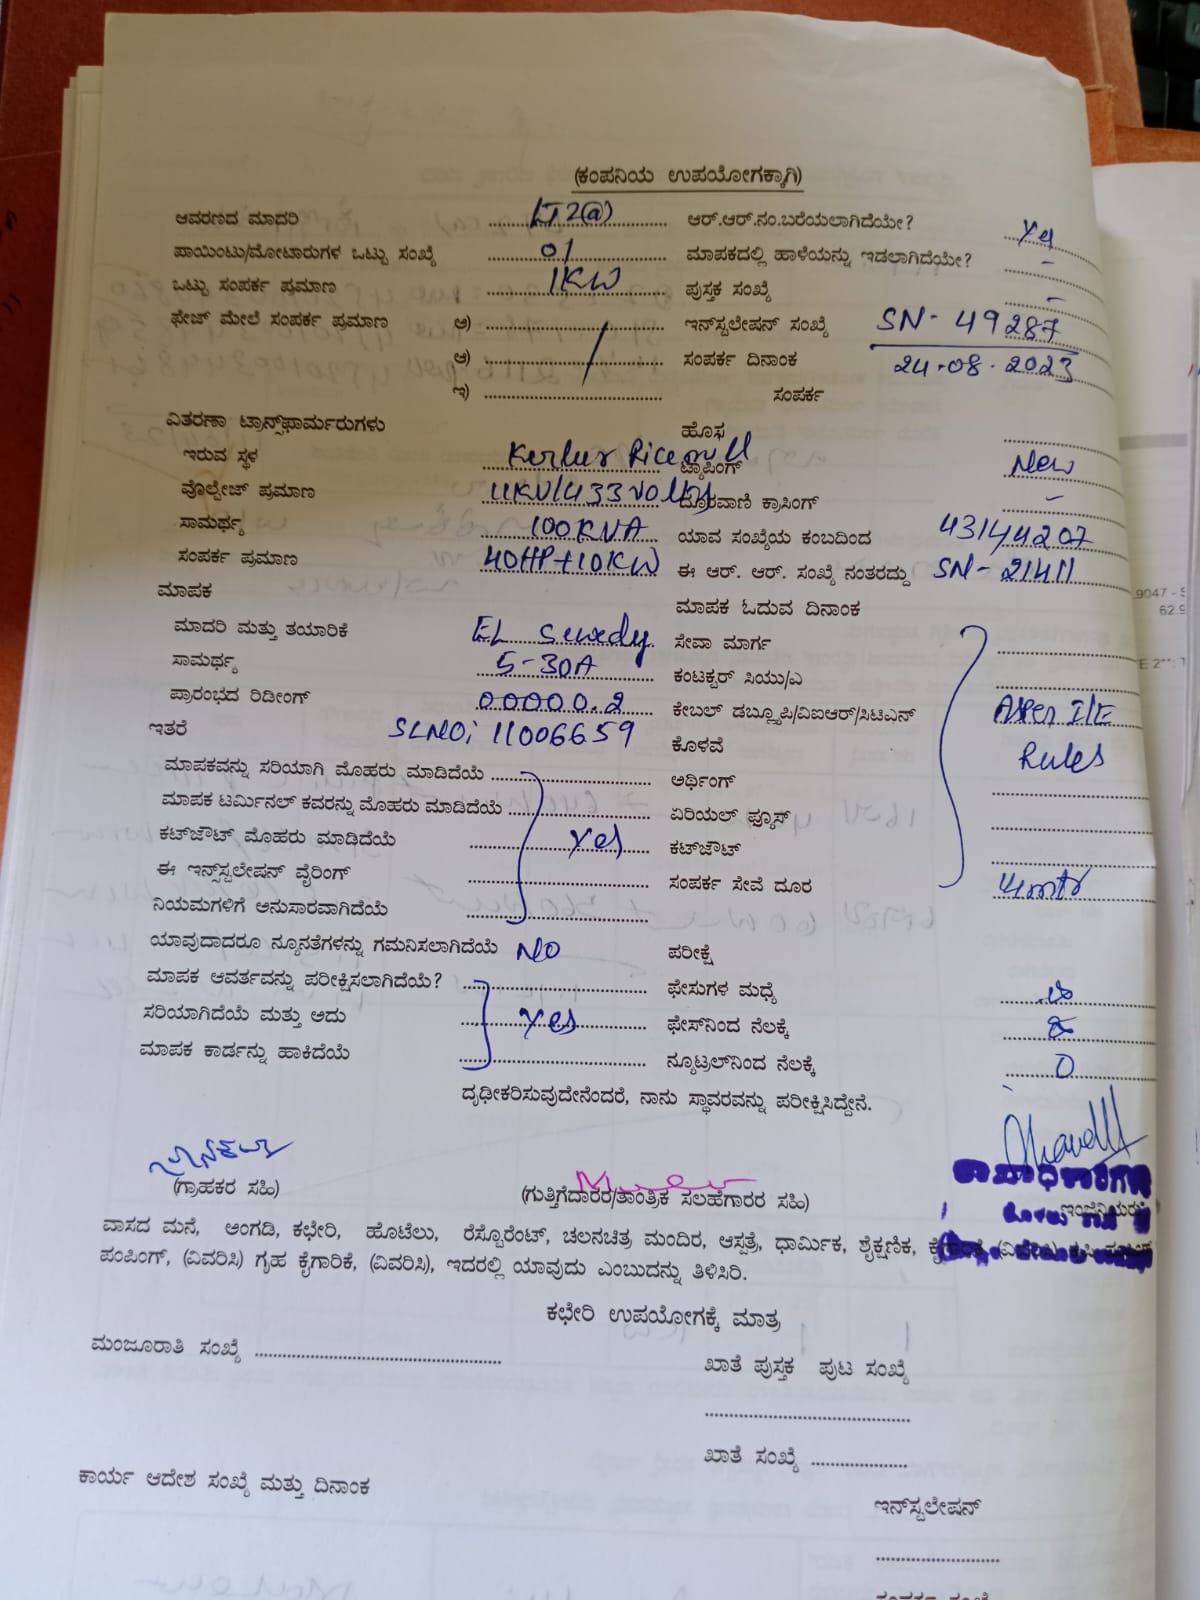 (ಕಂಪನಿಯ ಉಪಯೋಗಕ್ಕಾಗಿ)
ಆವರಣದ ಮಾದರಿ LT2(a) ಆರ್.ಆರ್.ನಂ.ಬರೆಯಲಾಗಿದೆಯೇ? Yes
ಪಾಯಿಂಟು/ಮೋಟಾರುಗಳ ಒಟ್ಟು ಸಂಖ್ಯೆ 01 ಮಾಪಕದಲ್ಲಿ ಹಾಳೆಯನ್ನು ಇಡಲಾಗಿದೆಯೇ? -
ಒಟ್ಟು ಸಂಪರ್ಕ ಪ್ರಮಾಣ 1KW ಪುಸ್ತಕ ಸಂಖ್ಯೆ -
ಫೇಜ್ ಮೇಲೆ ಸಂಪರ್ಕ ಪ್ರಮಾಣ ಅ) ಇನ್‌ಸ್ಟಲೇಷನ್ ಸಂಖ್ಯೆ SN- 49287
ಆ) ಸಂಪರ್ಕ ದಿನಾಂಕ 24-08-2023
ಇ) ಸಂಪರ್ಕ
ವಿತರಣಾ ಟ್ರಾನ್ಸ್‌ಫಾರ್ಮರುಗಳು ಹೊಸ
ಇರುವ ಸ್ಥಳ Kerlur Rice mill ಟ್ಯಾಪಿಂಗ್ New
ವೊಲ್ಟೇಜ್ ಪ್ರಮಾಣ 11KV/433 Volts ದೂರವಾಣಿ ಕ್ರಾಸಿಂಗ್ -
ಸಾಮರ್ಥ್ಯ 100KVA ಯಾವ ಸಂಖ್ಯೆಯ ಕಂಬದಿಂದ 43144207
ಸಂಪರ್ಕ ಪ್ರಮಾಣ 40HP+10KW ಈ ಆರ್. ಆರ್. ಸಂಖ್ಯೆ ನಂತರದ್ದು SN- 21411
ಮಾಪಕ ಮಾಪಕ ಓದುವ ದಿನಾಂಕ
ಮಾದರಿ ಮತ್ತು ತಯಾರಿಕೆ EL Sewedy ಸೇವಾ ಮಾರ್ಗ
ಸಾಮರ್ಥ್ಯ 5-30A ಕಂಟಕ್ಟರ್ ಸಿಯು/ಎ
ಪ್ರಾರಂಭದ ರಿಡೀಂಗ್ 00000.2 ಕೇಬಲ್ ಡಬ್ಲ್ಯೂಪಿ/ವಿಐಆರ್/ಸಿಟಿಎಸ್ As per I/E
ಇತರೆ SLNO: 11006659 ಕೊಳವೆ Rules
ಮಾಪಕವನ್ನು ಸರಿಯಾಗಿ ಮೊಹರು ಮಾಡಿದೆಯೆ ಅರ್ಥಿಂಗ್
ಮಾಪಕ ಟರ್ಮಿನಲ್ ಕವರನ್ನು ಮೊಹರು ಮಾಡಿದೆಯೆ ಏರಿಯಲ್ ಫ್ಯೂಸ್
ಕಟ್‌ಔಟ್ ಮೊಹರು ಮಾಡಿದೆಯೆ Yes ಕಟ್‌ಔಟ್
ಈ ಇನ್ಸ್‌ಸ್ಟಲೇಷನ್ ವೈರಿಂಗ್ ಸಂಪರ್ಕ ಸೇವೆ ದೂರ 4mtr
ನಿಯಮಗಳಿಗೆ ಅನುಸಾರವಾಗಿದೆಯೆ
ಯಾವುದಾದರೂ ನ್ಯೂನತೆಗಳನ್ನು ಗಮನಿಸಲಾಗಿದೆಯೆ NO ಪರೀಕ್ಷೆ
ಮಾಪಕ ಆವರ್ತವನ್ನು ಪರೀಕ್ಷಿಸಲಾಗಿದೆಯೆ? ಫೇಸುಗಳ ಮಧ್ಯೆ
ಸರಿಯಾಗಿದೆಯೆ ಮತ್ತು ಅದು Yes ಫೇಸ್‌ನಿಂದ ನೆಲಕ್ಕೆ
ಮಾಪಕ ಕಾರ್ಡನ್ನು ಹಾಕಿದೆಯೆ ನ್ಯೂಟ್ರಲ್‌ನಿಂದ ನೆಲಕ್ಕೆ 0
ದೃಢೀಕರಿಸುವುದೇನೆಂದರೆ, ನಾನು ಸ್ಥಾವರವನ್ನು ಪರೀಕ್ಷಿಸಿದ್ದೇನೆ.
(ಗ್ರಾಹಕರ ಸಹಿ) (ಗುತ್ತಿಗೆದಾರರ/ತಾಂತ್ರಿಕ ಸಲಹೆಗಾರರ ಸಹಿ) ಇಂಜಿನಿಯರು
ವಾಸದ ಮನೆ, ಅಂಗಡಿ, ಕಛೇರಿ, ಹೊಟೆಲು, ರೆಸ್ಟೋರೆಂಟ್, ಚಲನಚಿತ್ರ ಮಂದಿರ, ಆಸ್ಪತ್ರೆ, ಧಾರ್ಮಿಕ, ಶೈಕ್ಷಣಿಕ,
ಪಂಪಿಂಗ್, (ವಿವರಿಸಿ) ಗೃಹ ಕೈಗಾರಿಕೆ, (ವಿವರಿಸಿ), ಇದರಲ್ಲಿ ಯಾವುದು ಎಂಬುದನ್ನು ತಿಳಿಸಿರಿ.
ಕಛೇರಿ ಉಪಯೋಗಕ್ಕೆ ಮಾತ್ರ
ಮಂಜೂರಾತಿ ಸಂಖ್ಯೆ ಖಾತೆ ಪುಸ್ತಕ ಪುಟ ಸಂಖ್ಯೆ
ಖಾತೆ ಸಂಖ್ಯೆ
ಕಾರ್ಯ ಆದೇಶ ಸಂಖ್ಯೆ ಮತ್ತು ದಿನಾಂಕ
ಇನ್‌ಸ್ಟಲೇಷನ್